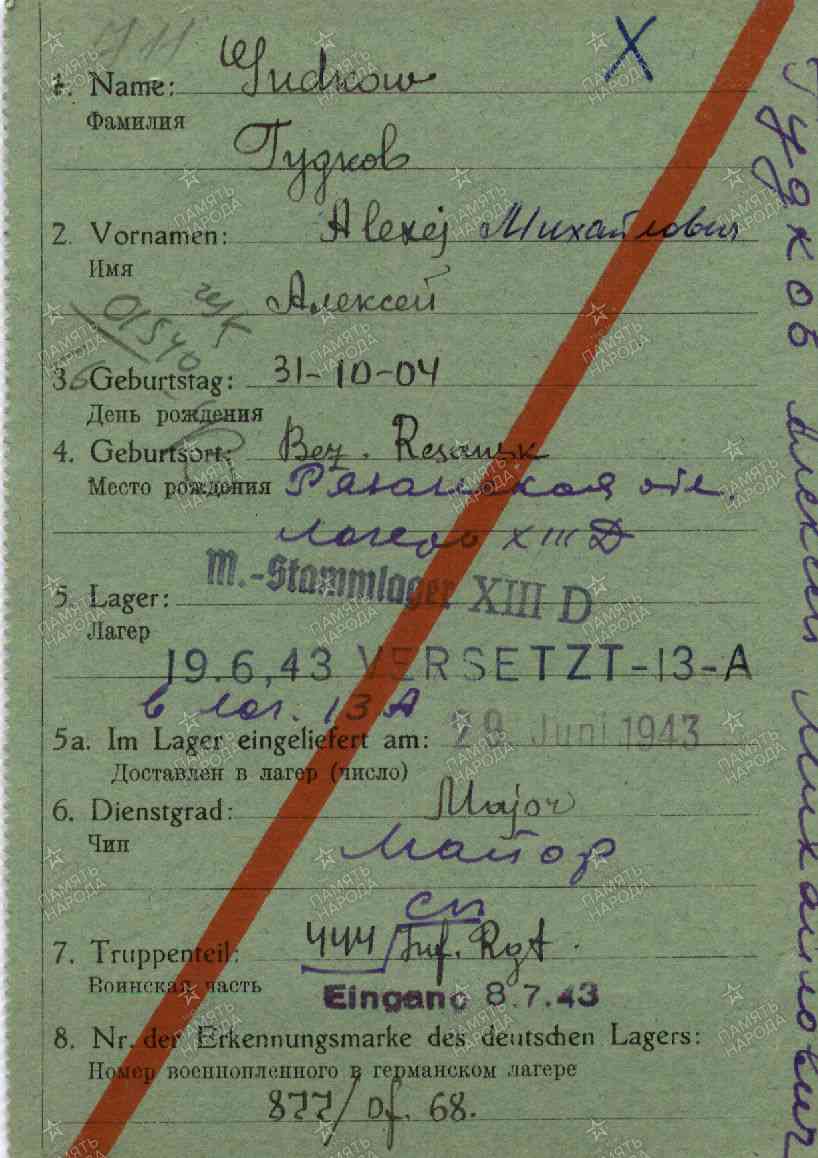 711
X
1. Name: Gudkow
Фамилия
Гудков
2. Vornamen: Alexej Михайлович
Имя
Алексей
3. Geburtstag: 31-10-04
День рождения
4. Geburtsort: Bez. Resansk
Место рождения Рязанская обл.
лагерь XIII D
M.-Stammlager XIII D
5. Lager:
Лагерь
19.6,43 VERSETZT-13-A
в лаг. 13 А
5a. Im Lager eingeliefert am: 29. Juni 1943
Доставлен в лагер (число)
6. Dienstgrad: Major
Чин
Майор
сп
7. Truppenteil: 444/Inf. Rgt.
Воинская часть
Eingang 8.7.43
8. Nr. der Erkennungsmarke des deutschen Lagers:
Номер военнопленного в германском лагере
877/Of. 68.
Гудков Алексей Михайлович
ПАМЯТЬ НАРОДА